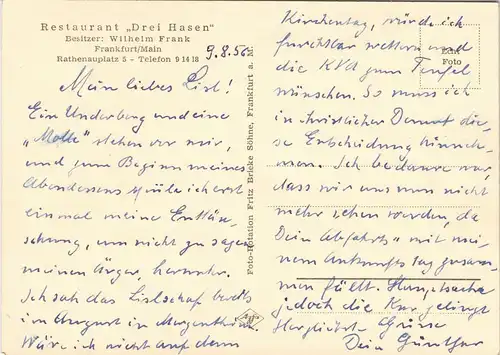 Restaurant „Drei Hasen"
Besitzer: Wilhelm Frank
Frankfurt/Main
Rathenauplatz 5 - Telefon 9 14 18
9.8.56
Mein liebes Lisl!
Ein Underberg und eine
„Molle" stehen vor mir,
und zum Beginn meines
Abendessens spüle ich erst
einmal meine Enttäu-
schung, um nicht zu sagen
meinen Ärger, herunter.
Ich sah das Lislschaf bereits
im August in Morgenthin
Wäre ich nicht auf dem
Foto-Rotation Fritz Bricke Söhne, Frankfurt a. M.
Kirchentag, würde ich
furchtbar wettern und
die KVA zum Teufel
wünschen. So muss ich
in christlicher Demut die-
se Entscheidung hinneh-
men. Ich bedaure nur,
dass wir uns nun nicht
mehr sehen werden, da
Dein Abfahrts- mit mei-
nem Ankunftstag zusam-
men fällt. Hauptsache
jedoch die Kur gelingt
Herzlichste Grüsse
Dein Günther
Echt
Foto